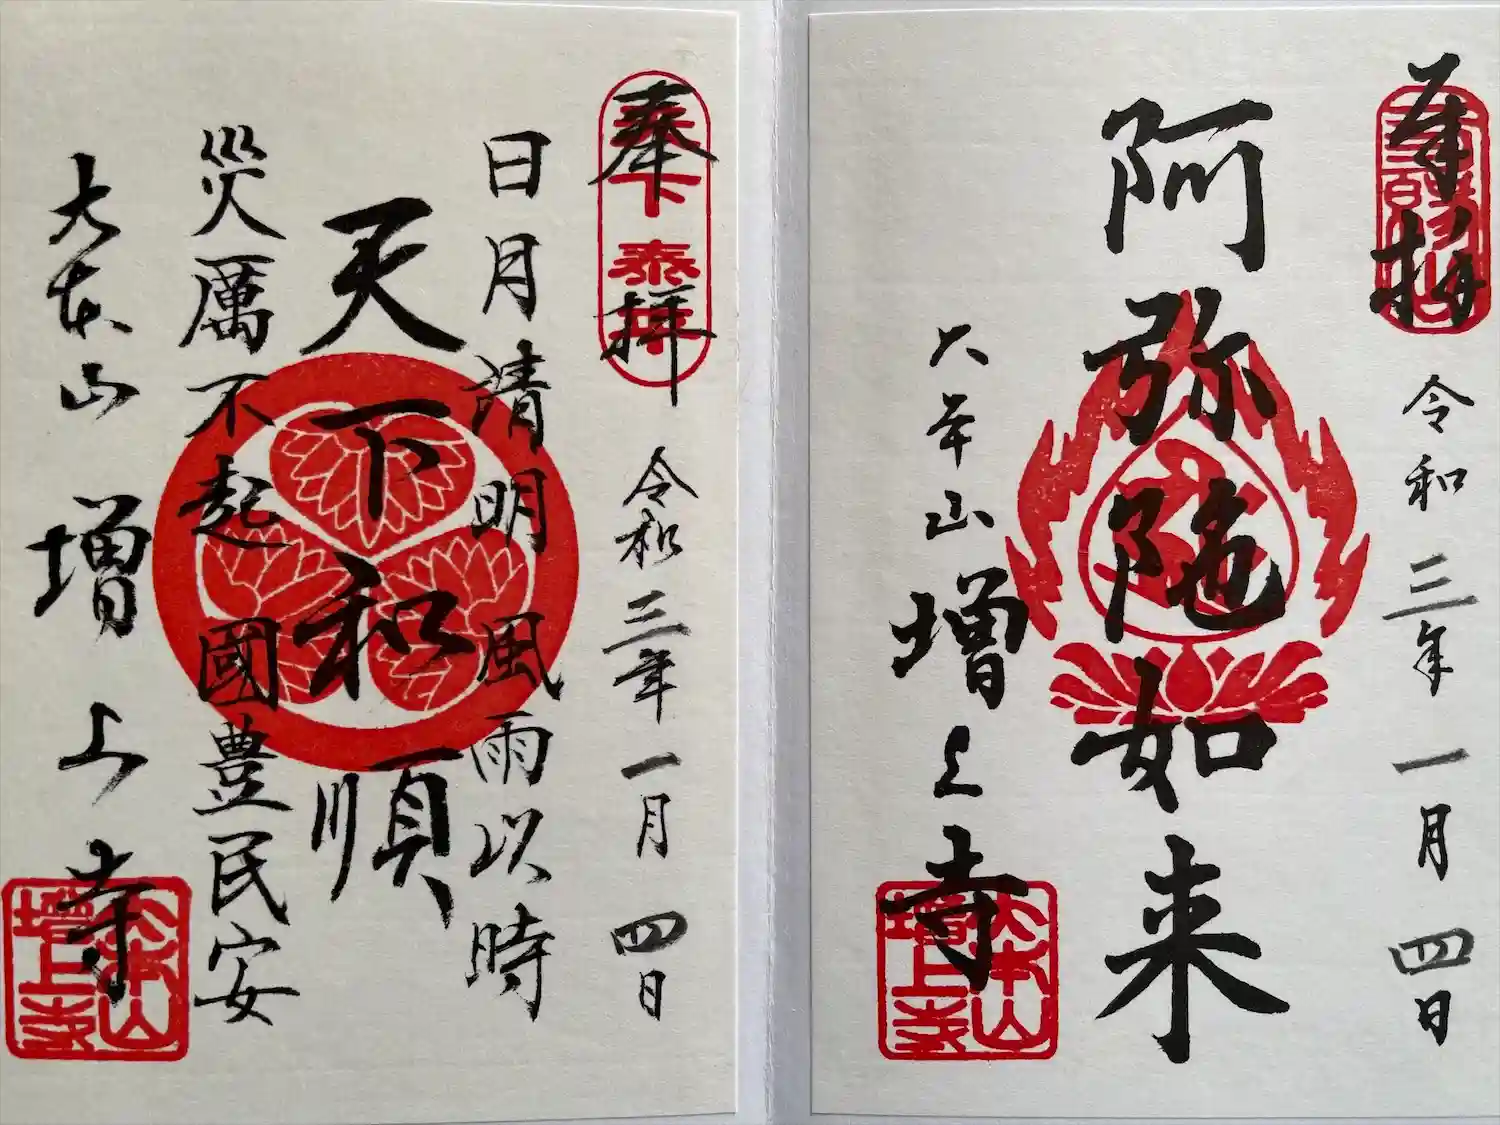 奉拝
令和三年一月四日
阿弥陀如来
大本山増上寺
大本山
増上寺
奉拝
天下泰平
令和三年一月四日
日月清明風雨以時
天下和順
災厲不起國豊民安
大本山増上寺
大本山
増上寺